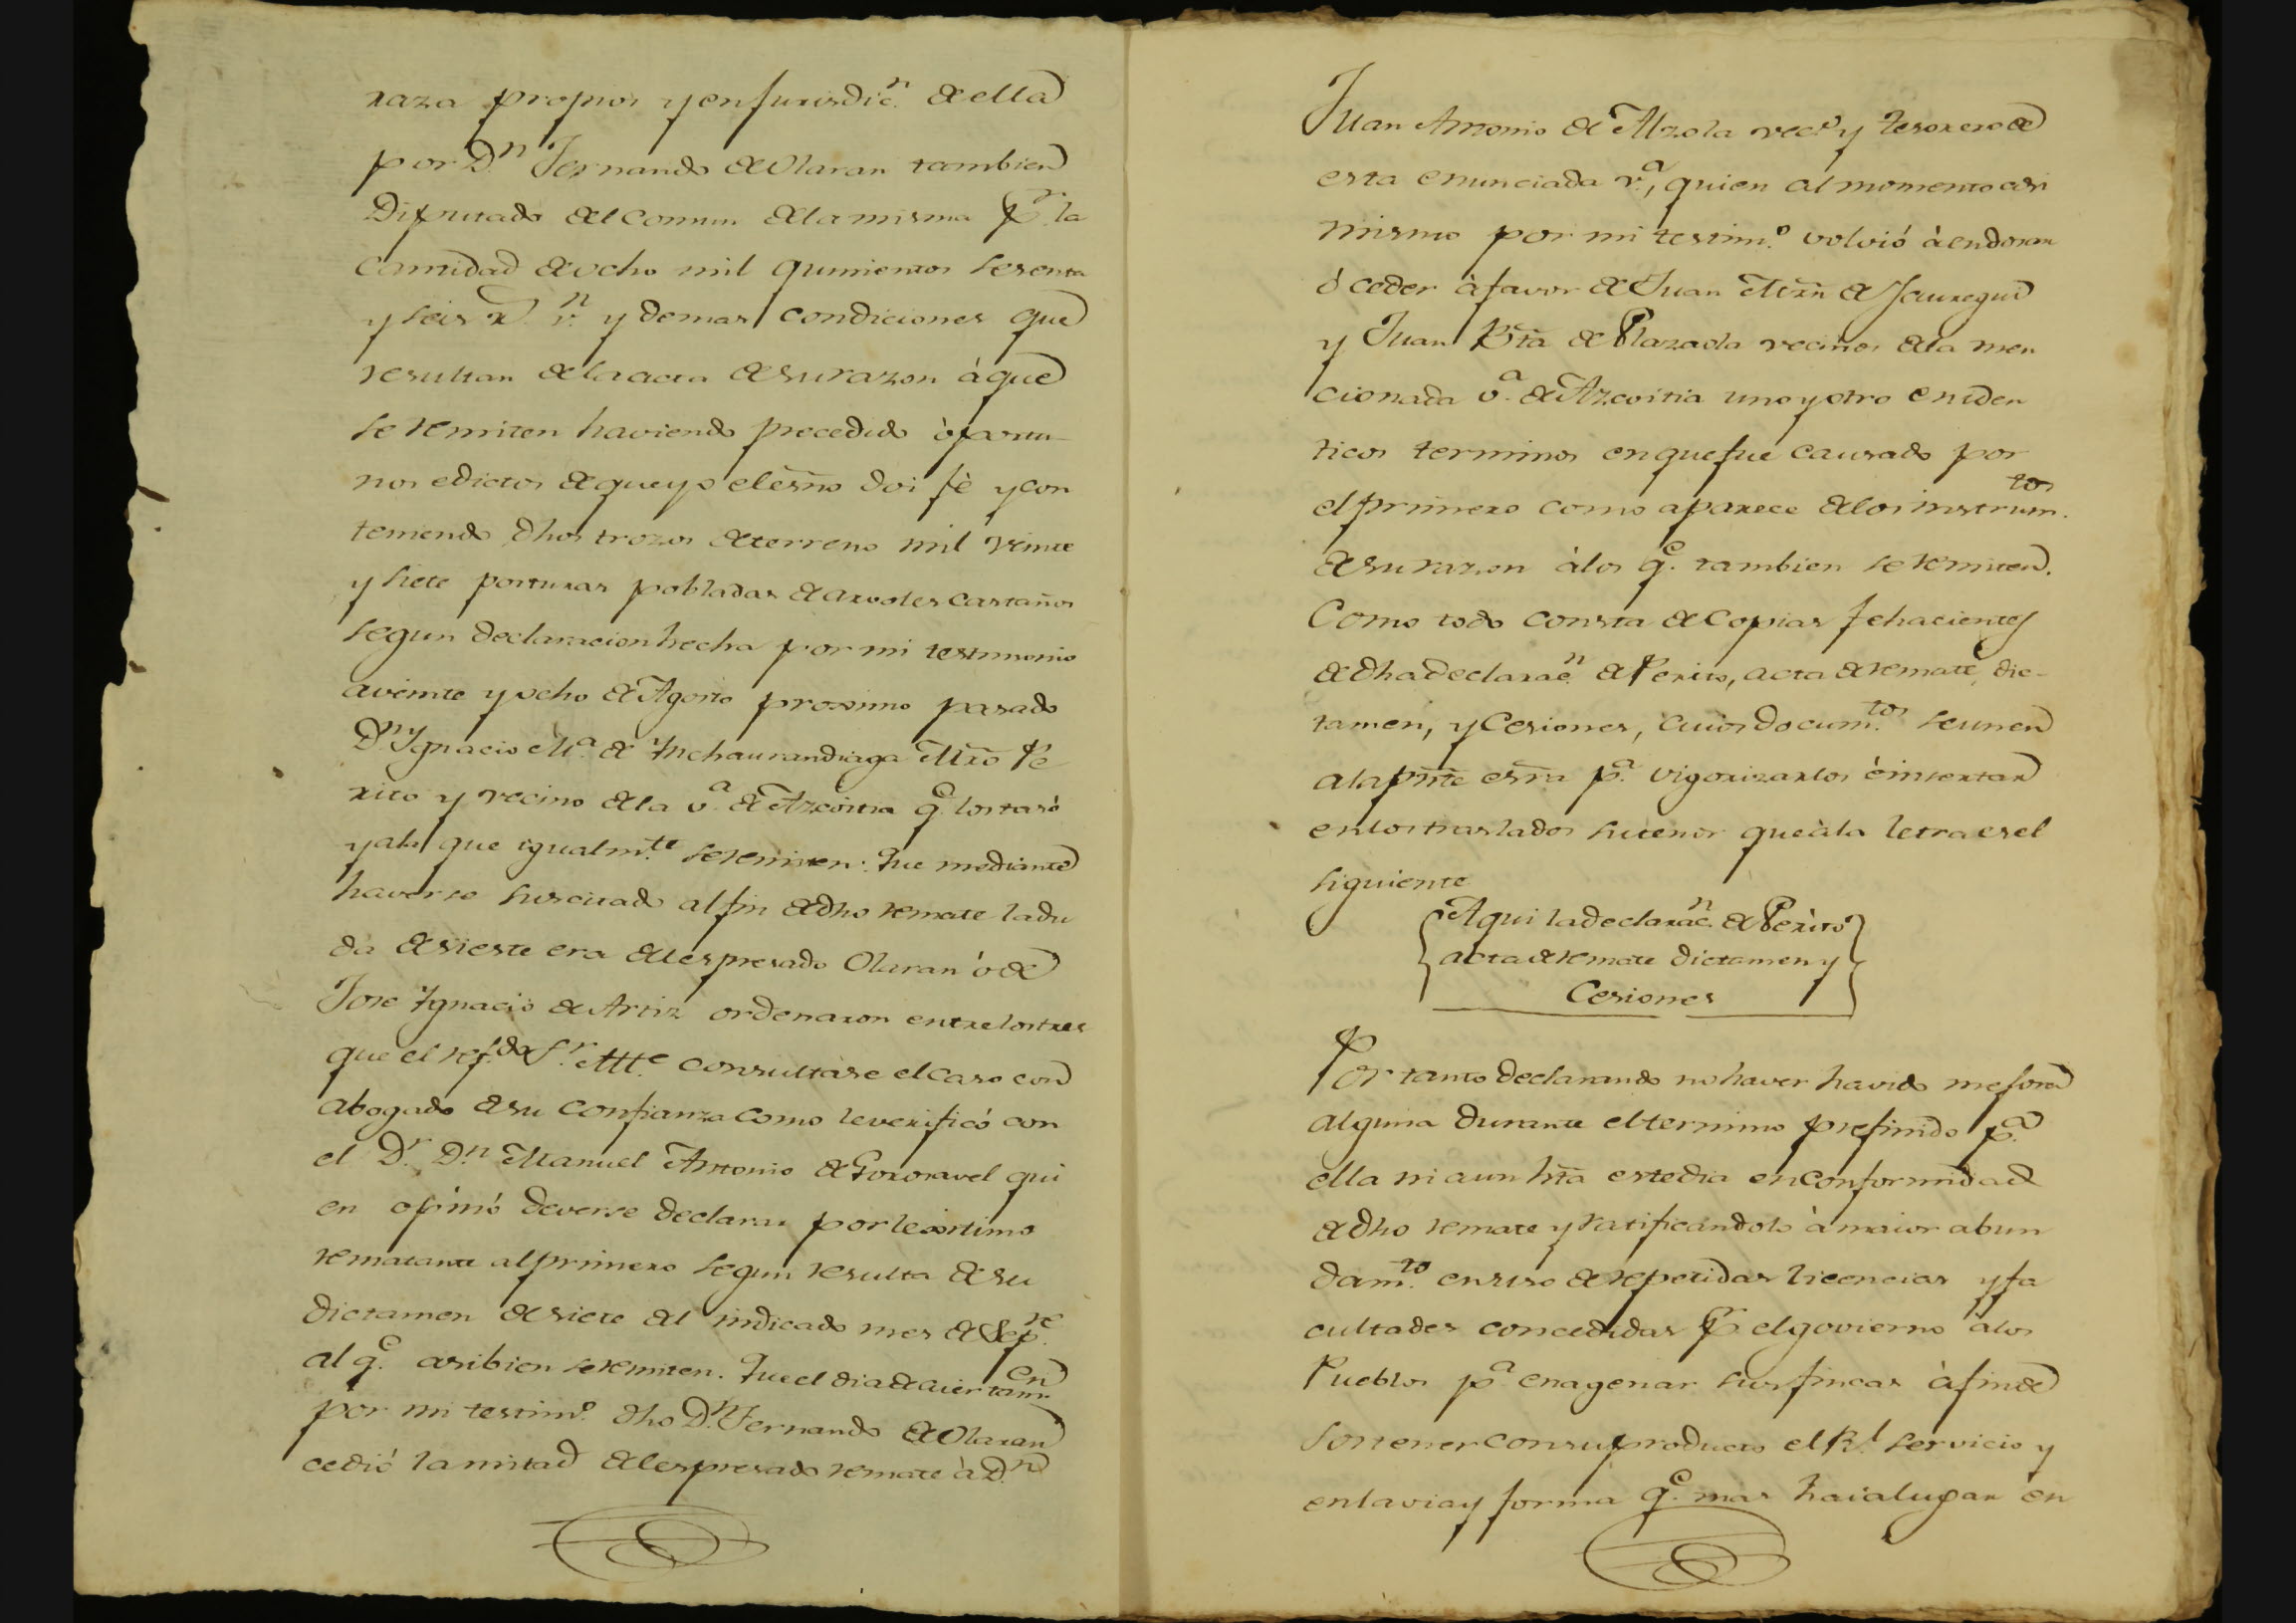 raza propios y en Jurisdic.n de ella
por D.n Fernando de Olaran tambien
Diputado del Comun de la misma p.r la
cantidad de ocho mil quinientos sesenta
y seis r.s v.n y demas condiciones que
resultan de la acta de su razon à que
se remiten haviendo precedido òportu-
nos edictos de que yo el esno doi fè y con
teniendo dhos trozos de terreno mil veinte
y siete posturas pobladas de arvoles castaños
segun declaracion hecha por mi testimonio
a veinte y ocho de Agosto proximo pasado
D.n Ygnacio M.a de Ynchaurandiaga Mro Pe
rito y vecino de la v.a de Azcoitia q.e los tasó
y a la que igualm.te se remiten: Que mediante
haverse suscitado al fin de dho remate la du
da de si este era del espresado Olaran ò de
Jose Ygnacio de Artiz ordenaron entre los tres
que el ref.do S.r Alc.e consultase el caso con
Abogado de su confianza como le verificó con
el D.r D.n Manuel Antonio de Gorosavel qui
en opinó deverse declarar por lexitimo
rematante al primero segun resulta de su
dictamen de siete del indicado mes de Sep.re
al q.e asibien se remiten. Que el dia de aier tam.en
por mi testim.o dho D.n Fernando de Olaran
cedió la mitad del espresado remate à D.n
Juan Antonio de Alzola vec.o y tesorero de
esta enunciada v.a, quien al momento asi
mismo por mi testim.o volvió à endosar
ó ceder à favor de Juan Mrn de Jauregui
y Juan Bta de Plazaola vecinos de la men
cionada v.a de Azcoitia uno y otro en iden
ticos terminos en que fue causado por
el primero como aparece de los instrum.tos
de su razon à los q.e tambien se remiten.
Como todo consta de Copias fehacientes
de dha declarac.n de Perito, acta de remate, dic-
tamen, y Cesiones, cuios docum.tos se unen
a la pnte esra p.a vigorizarlos è insertar
en los traslados su tenor que à la letra es el
siguiente
Aqui la declarac.n de Perito
acta de remate dictamen y
Cesiones
Por tanto declarando no haver havido mejora
alguna durante el termino prefinido p.a
ella ni aun hta este dia en conformidad
de dho remate y ratificandolo à maior abun
dam.to en uso de repetidas licencias y fa
cultades concedidas p.r el govierno à los
Pueblos p.a enagenar sus fincas à fin de
sostener con su producto el R.l servicio y
en la via y forma q.e mas haia lugar en